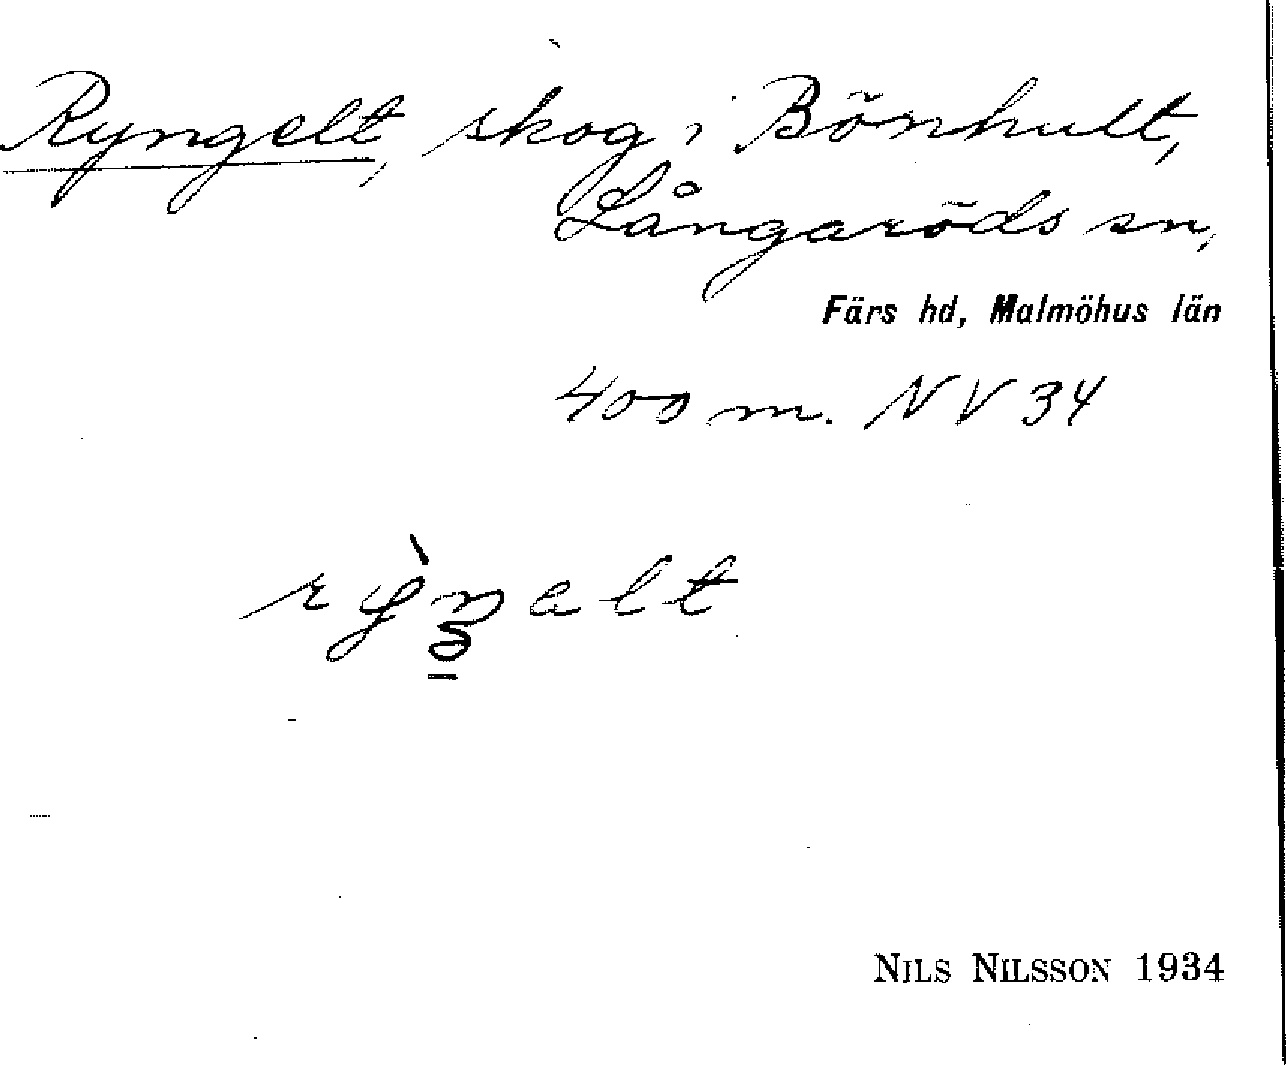 Ryngelt, skog i Bönhult,
Långaröds sn,
Färs hd, Malmöhus län
400 m. NV 34
NILS NILSSON 1934